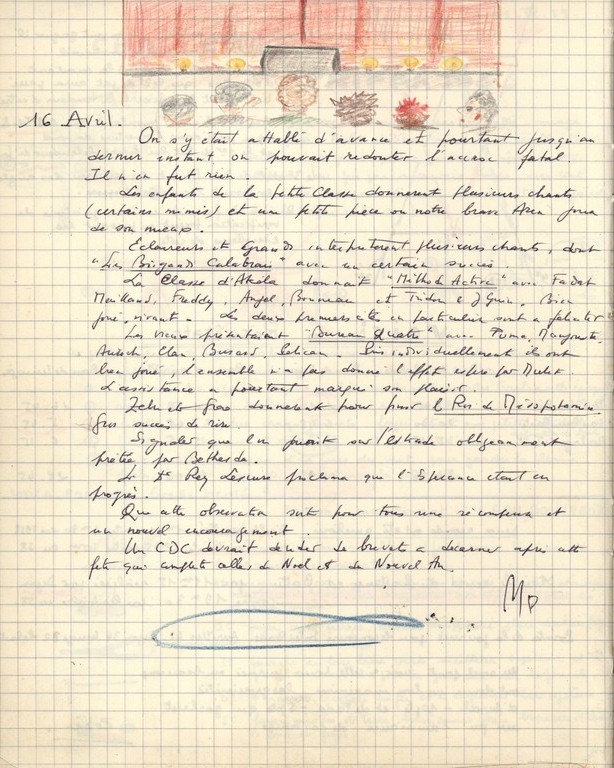 16 Avril.
On s'y était attablé d'avance et pourtant jusqu'au
dernier instant on pouvait redouter l'accroc fatal
Il n'en fut rien.
Les enfants de la petite Classe donnèrent plusieurs chants
(certains mimés) et une petite pièce où notre brave joua
de son mieux.
Eclaireurs et Grands interprétèrent plusieurs chants, dont
"Les Brigands Calabrais" avec un certain succès.
La Classe d'Akela donnait "Méthode Active" avec
Freddy, Angel, Bonneau et Bien
joué, vivant. Les deux premiers cités en particulier sont à féliciter
Les vieux présentaient "Bureau Quatre" avec Puma,
Clan, Busard, Pelican. Si individuellement ils ont
bien joué, l'ensemble n'a pas donné l'effet espéré par
L'assistance a pourtant marqué son plaisir.
Zebu et donnèrent pour finir le Roi de Mésopotamie.
Gros succès de rire.
Signaler que l'on jouait sur l'estrade obligeamment
prêtée par
Le Dr Rey proclama que l'Esperance était en
progrès.
Que cette observation soit pour tous une récompense et
un nouvel encouragement.
Un CDC devrait décider de brevets à décerner après cette
fête qui complète celles de Noël et du Nouvel An.